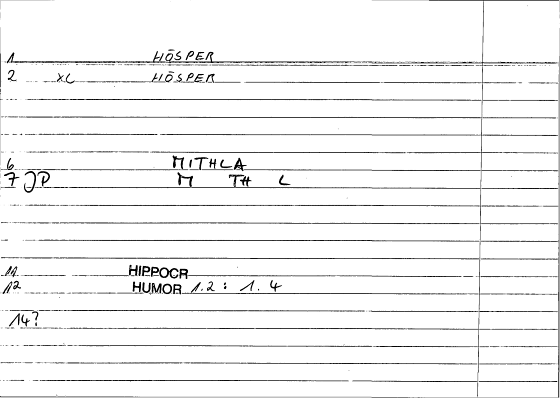 1 HŌSPER
2 XL HŌSPER
6 MITHLA
7 JP M TH L
11 HIPPOCR
12 HUMOR 1.2 : 1. 4
14?